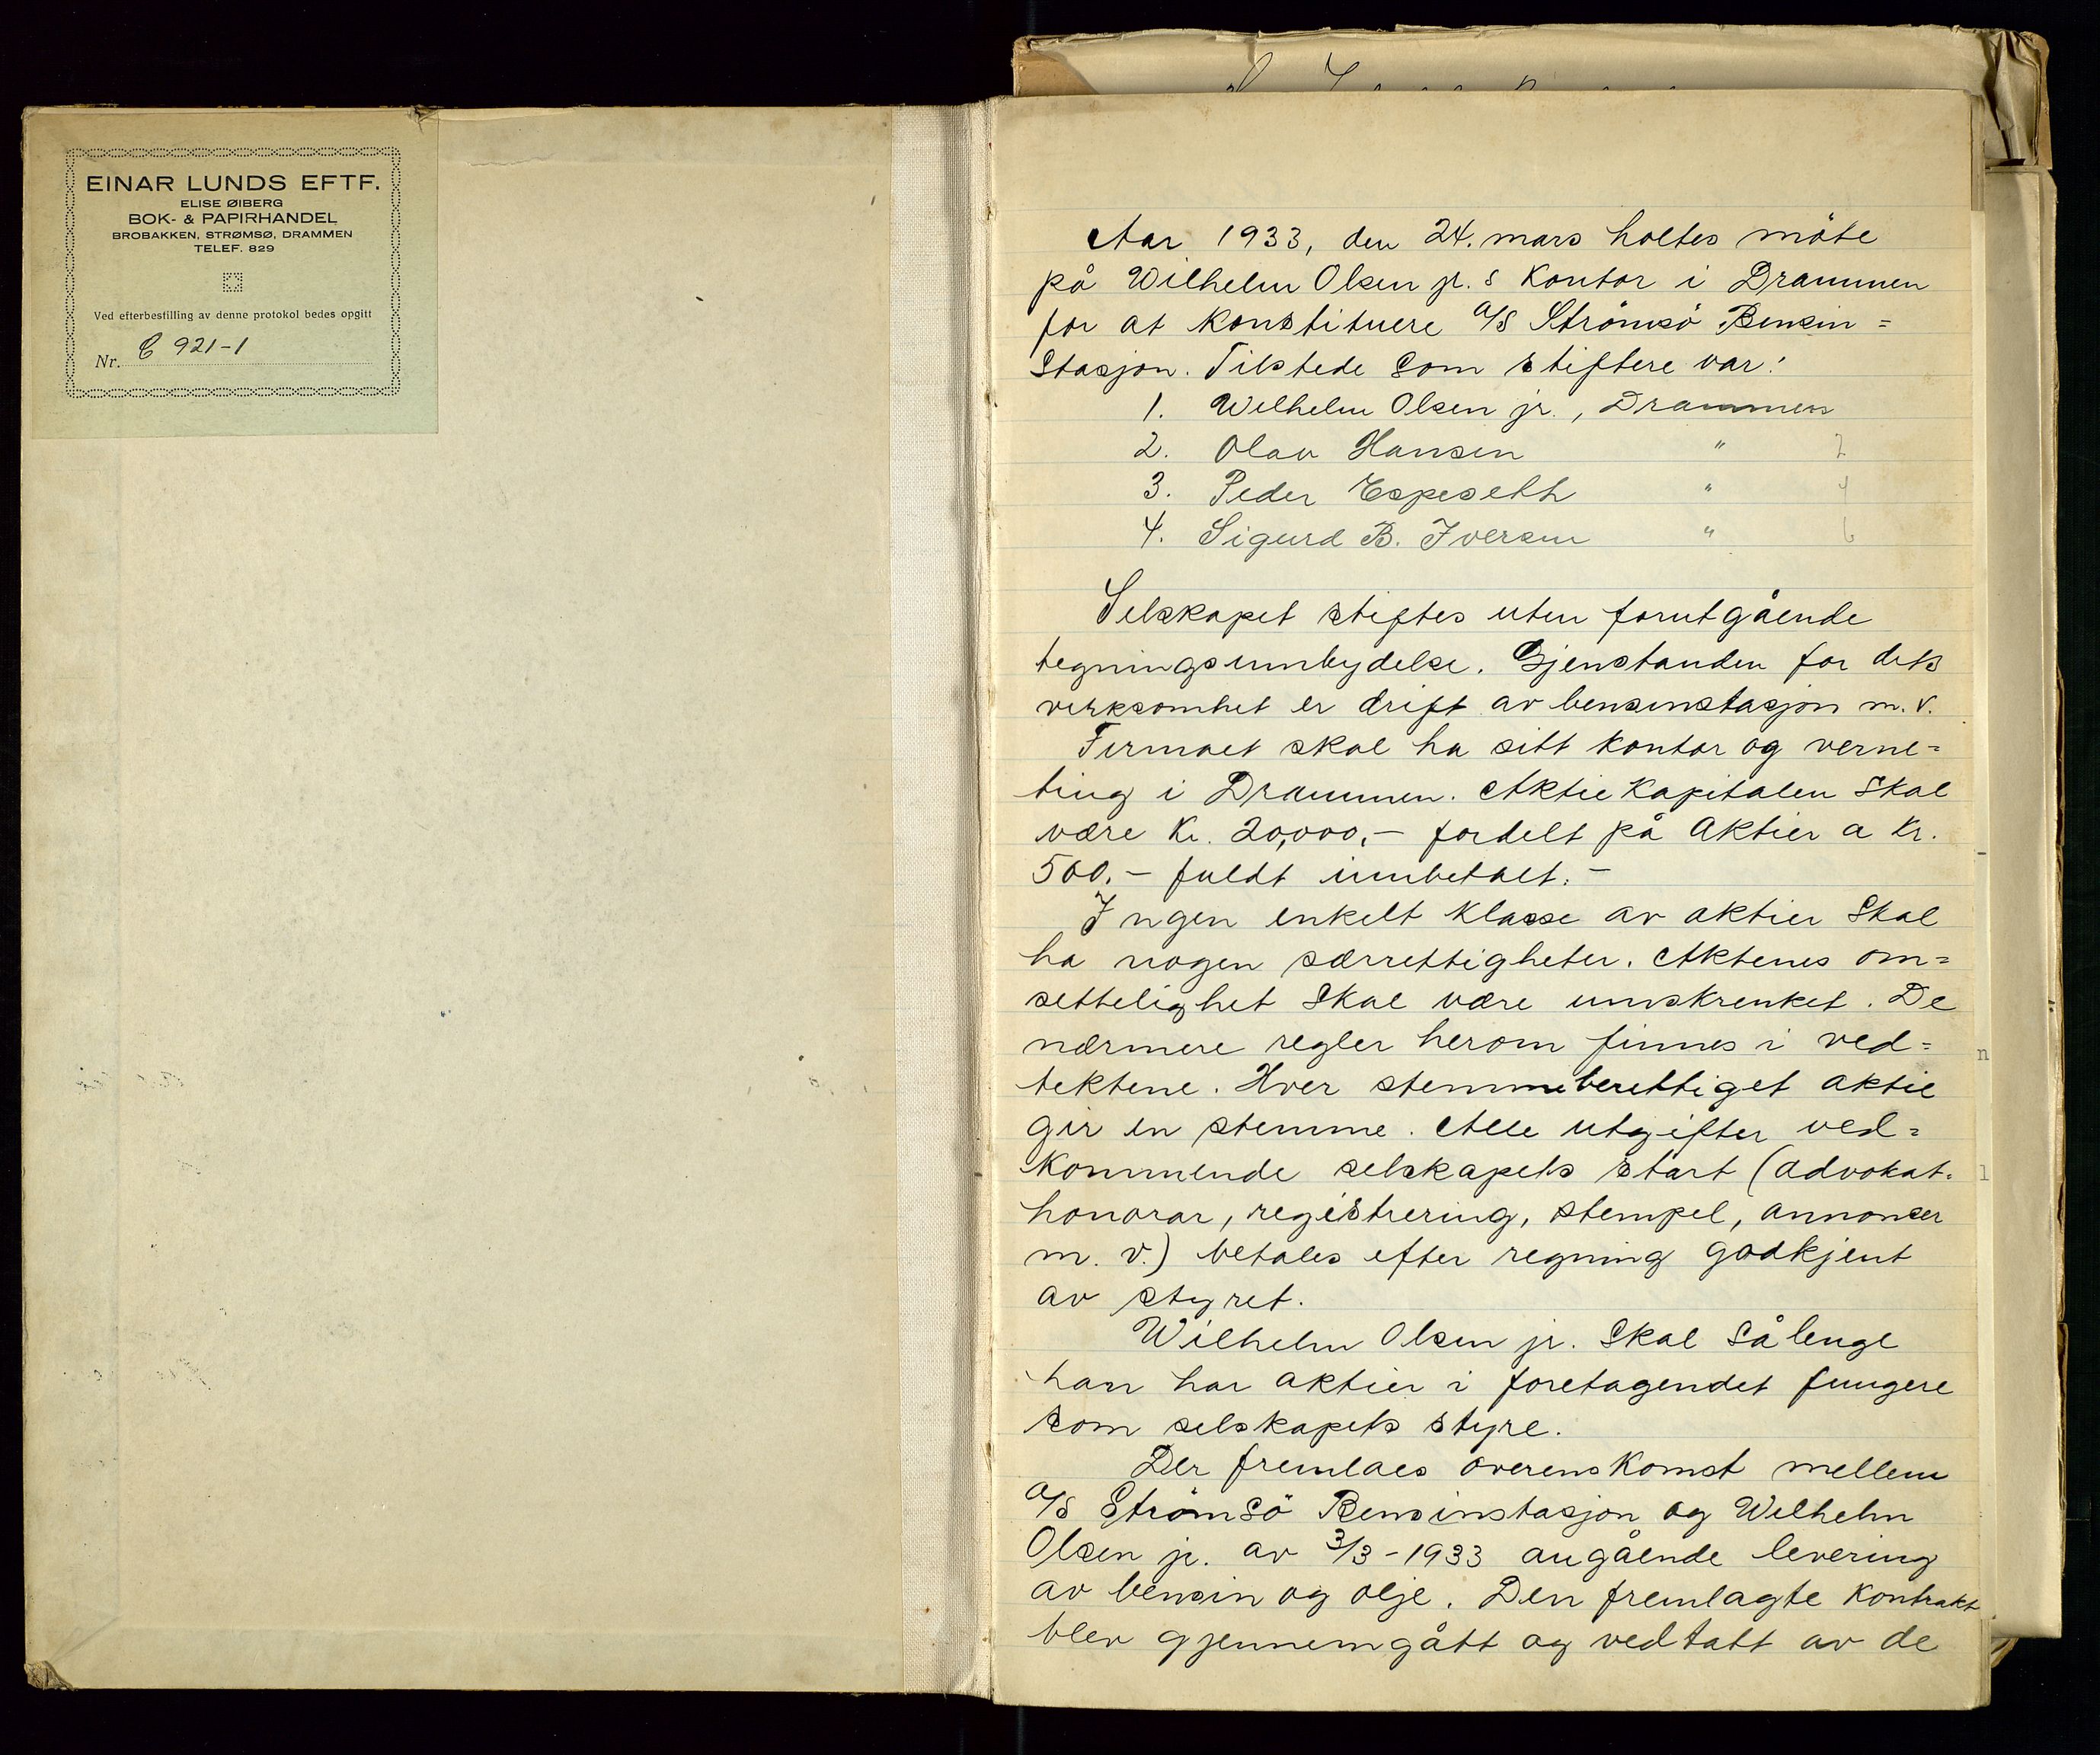 EINAR LUNDS EFTF.
ELISE ØIBERG
BOK- & PAPIRHANDEL
BROBAKKEN, STRØMSØ, DRAMMEN
TELEF. 829
Ved efterbestilling av denne protokol bedes opgitt
Nr. C 921-1
Aar 1933, den 24. mars holtes möte
på Wilhelm Olsen jr.s Kontor i Drammen
for at Konstituere A/S Strömsö Bensin=
Stasjon. Tilstede som stiftere var:
1. Wilhelm Olsen jr., Drammen
2. Olav Hansen " 2
3. Peder Espeseth " 4
4. Sigurd B. Iversen " 6
Selskapet stiftes uten forutgående
tegningsinnbydelse. Gjenstanden for dets
virksomhet er drift av bensinstasjon m.v.
Firmaet skal ha sitt Kontor og verne=
ting i Drammen. Aktie Kapitalen Skal
være Kr. 20,000,- fordelt på Aktier a Kr.
500.- fuldt innbetalt.-
Ingen enkelt Klasse av aktier Skal
ha nogen særrettigheter. Aktenes om=
settelighet Skal være innskrenket. De
nærmere regler herom finnes i ved=
tektene. Hver stemmeberettiget aktie
gir en stemme. Alle utgifter ved=
Kommende selskapets start (advokat=
honorar, registrering, stempel, annonser
m.v.) betales efter regning godkjent
av styret.
Wilhelm Olsen jr. Skal Så lenge
han har aktier i foretagendet fungere
som selskapets styre.
Der fremlaes overensKomst mellem
A/S StrömSö Bensinstasjon og Wilhelm
Olsen jr. av 3/3-1933 angående levering
av bensin og olje. Den fremlagte Kontrakt
blev gjennemgått og vedtatt av de